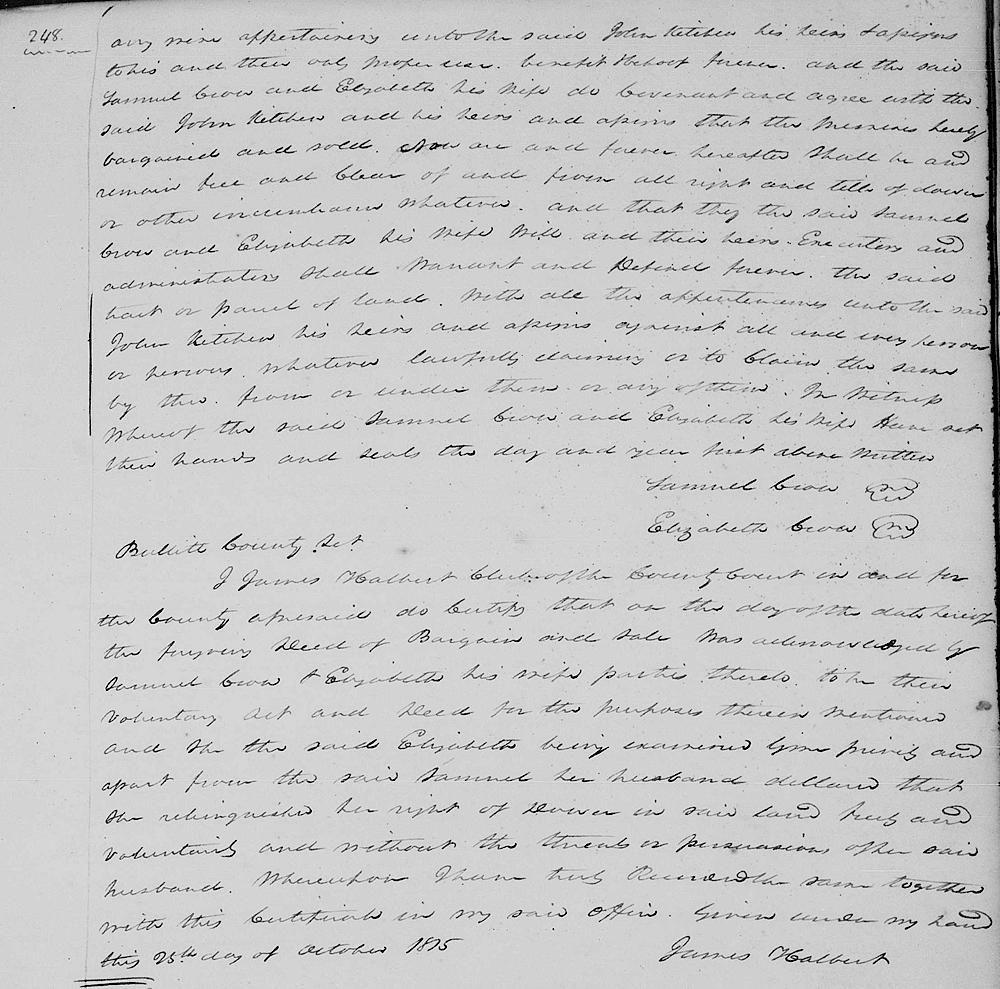 248.
any wise appertaining unto the said John Ketchen his heirs & assigns
to his and their only proper use. benefit & behoof forever. and the said
Samuel Crow and Elizabeth his wife do Covenant and agree with the
said John Ketchen and his heirs and assigns that the premises hereby
bargained and sold. Now are and forever hereafter shall be and
remain free and Clear of and from all right and title of dower
or other incumbrance whatever. and that they the said Samuel
Crow and Elizabeth his wife Will. and their heirs. Executors and
administrators shall Warrant and Defend forever. the said
tract or parcel of land. with all the appertenances unto the said
John Ketchen his heirs and assigns against all and every person
or persons. whatever lawfully claiming or to Claim the same
by the. from or under them or any of them. In Witness
Whereof the said Samuel Crow and Elizabeth his wife Have set
their hands and seals the day and year first above written
Samuel Crow
Elizabeth Crow
Bullitt County Sct
I James Halbert Clerk of the County Court in and for
the County aforesaid do Certify that on the day of the date hereof
the foregoing Deed of Bargain and sale was acknowledged by
Samuel Crow & Elizabeth his wife parties thereto. to be their
voluntary act and Deed for the purposes therein mentioned
and she the said Elizabeth being examined by me privily and
apart from the said Samuel her husband declared that
she relinquished her right of Dower in said land freely and
voluntarily and without the threats or persuasions of her said
husband. Whereupon I have truly Recorded the same together
with this Certificate in my said office. Given under my hand
this 25th day of October 1815
James Halbert